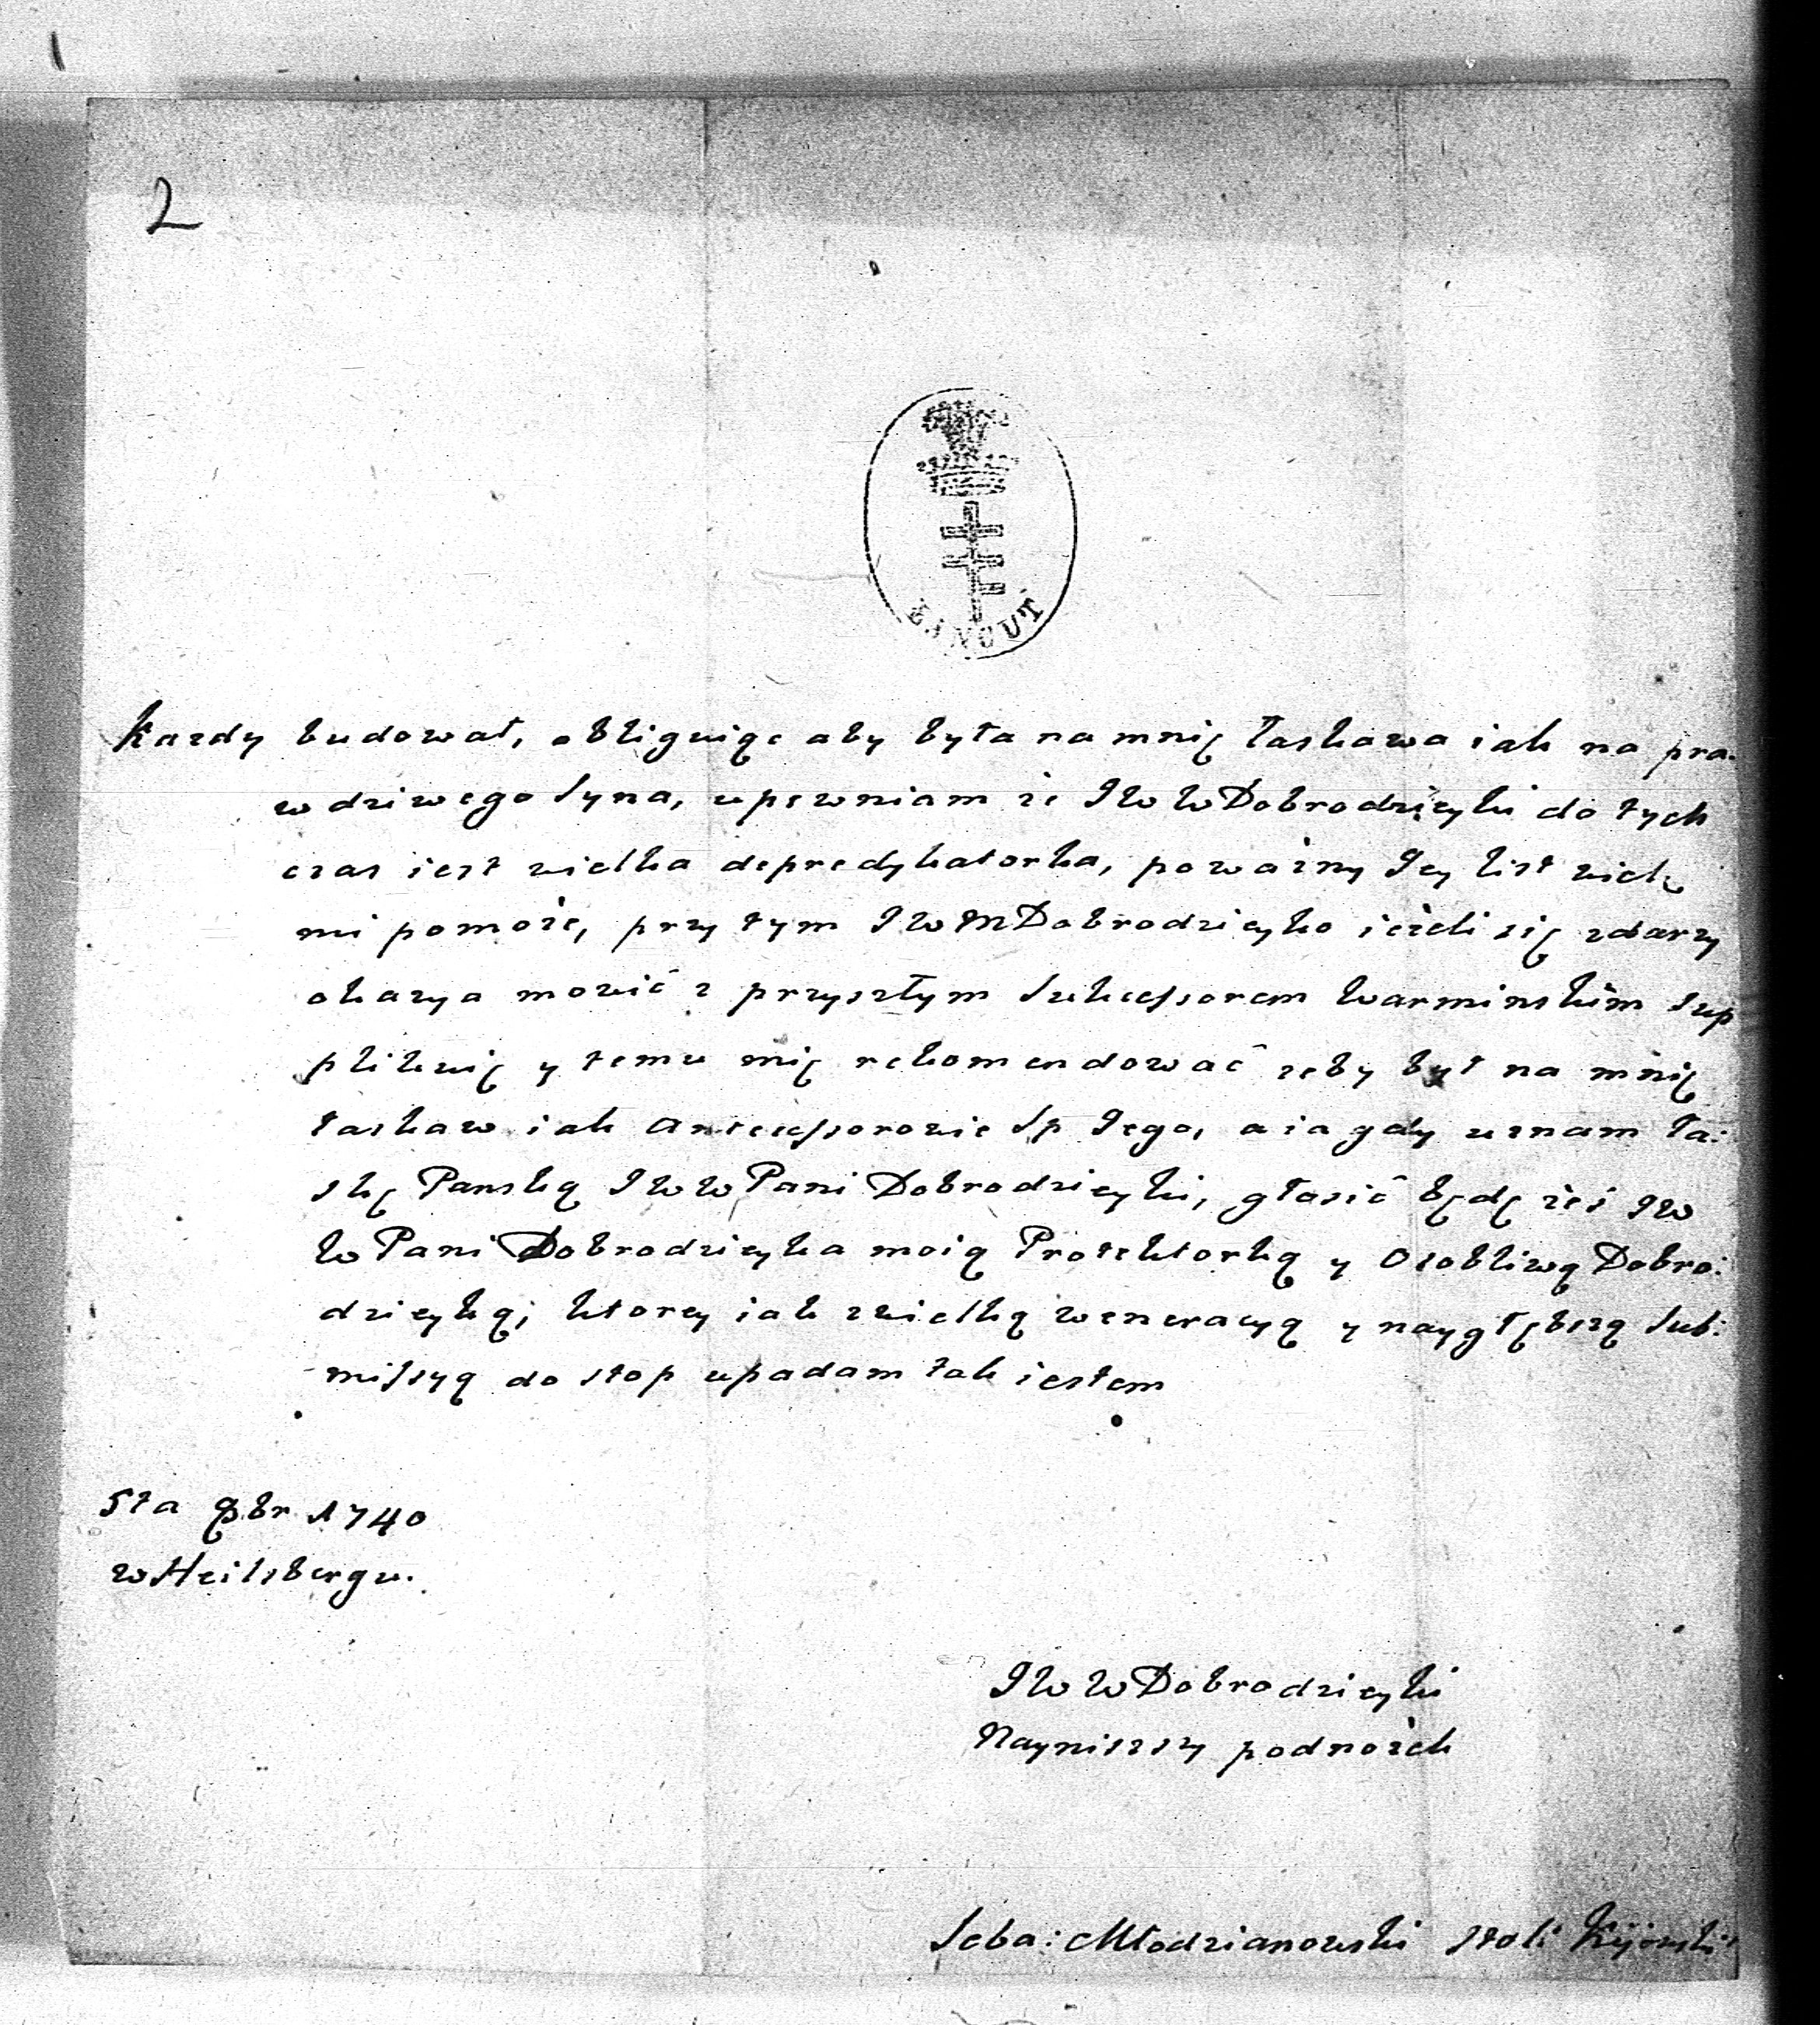 2
ŁAŃCUT
Kazdy budował, obliguiąc aby była na mnię łaskawa iak na pra:
wdziwego Syna, upewniam że JWWDobrodzieyki do tych
czas iest wielka depredykatorka, poważny Jey list wielę
mi pomoże, przy tym JWMDobrodzieyko ieżeli się zdarzy
okazya mowić z przyszłym Sukcessorem Warminskim Sup
plikuię y temu mię rekomendować zeby był na mnię
łaskaw iak Antecessorowie Sp Jego, a ia gdy uznam ła:
skę Panską JWWPani Dobrodzieyki, głosić będę żeś JW
WPani Dobrodzieyka moią Protektorką y Osobliwą Dobro:
dzieyką; ktorey iak zwielką weneracyą y naygłębszą Sub:
missyą do stop upadam tak iestem
5ta 9br 1740
w Heilsbergu.
JWWDobrodzieyki
Nayniszszy podnożek
Seba: Młodzianowski Stoli Kijowski